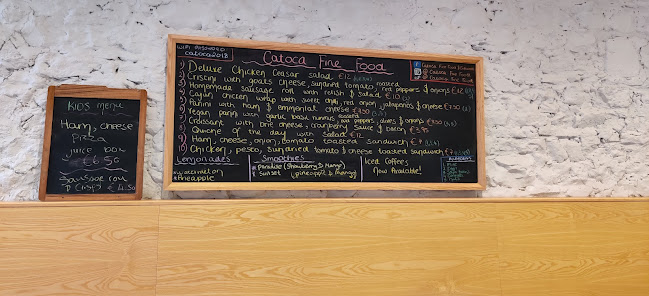 WIFI PASSWORD
catoca2018
Catoca Fine Food
Catoca Fine Food
Catoca Fine Food
1) Deluxe Chicken Ceasar salad €12
2) Crostini with goats cheese, sundried tomato, roasted red peppers & onions €12
3) Homemade sausage roll with relish & salad €10
4) Cajun chicken wrap with sweet chilli, red onion, jalapenos & cheese
5) Panini with ham & emmental cheese
6) Vegan panini with garlic basil hummus, roasted red peppers, olives & onions
7) Croissant with brie cheese, cranberry sauce & bacon
8) Quiche of the day with salad €12
9) Ham, cheese, onion, tomato toasted sandwich €7
10) Chicken, pesto, sundried tomato & cheese toasted sandwich
Lemonades
Pineapple
Smoothies
Paradise (Strawberry & Mango)
Sunset (pineapple & mango)
Iced Coffees
Now Available!
KIDS MENU
Ham, cheese
Pizza
Juice box
€6.50
Sausage roll
& Crisps €4.50